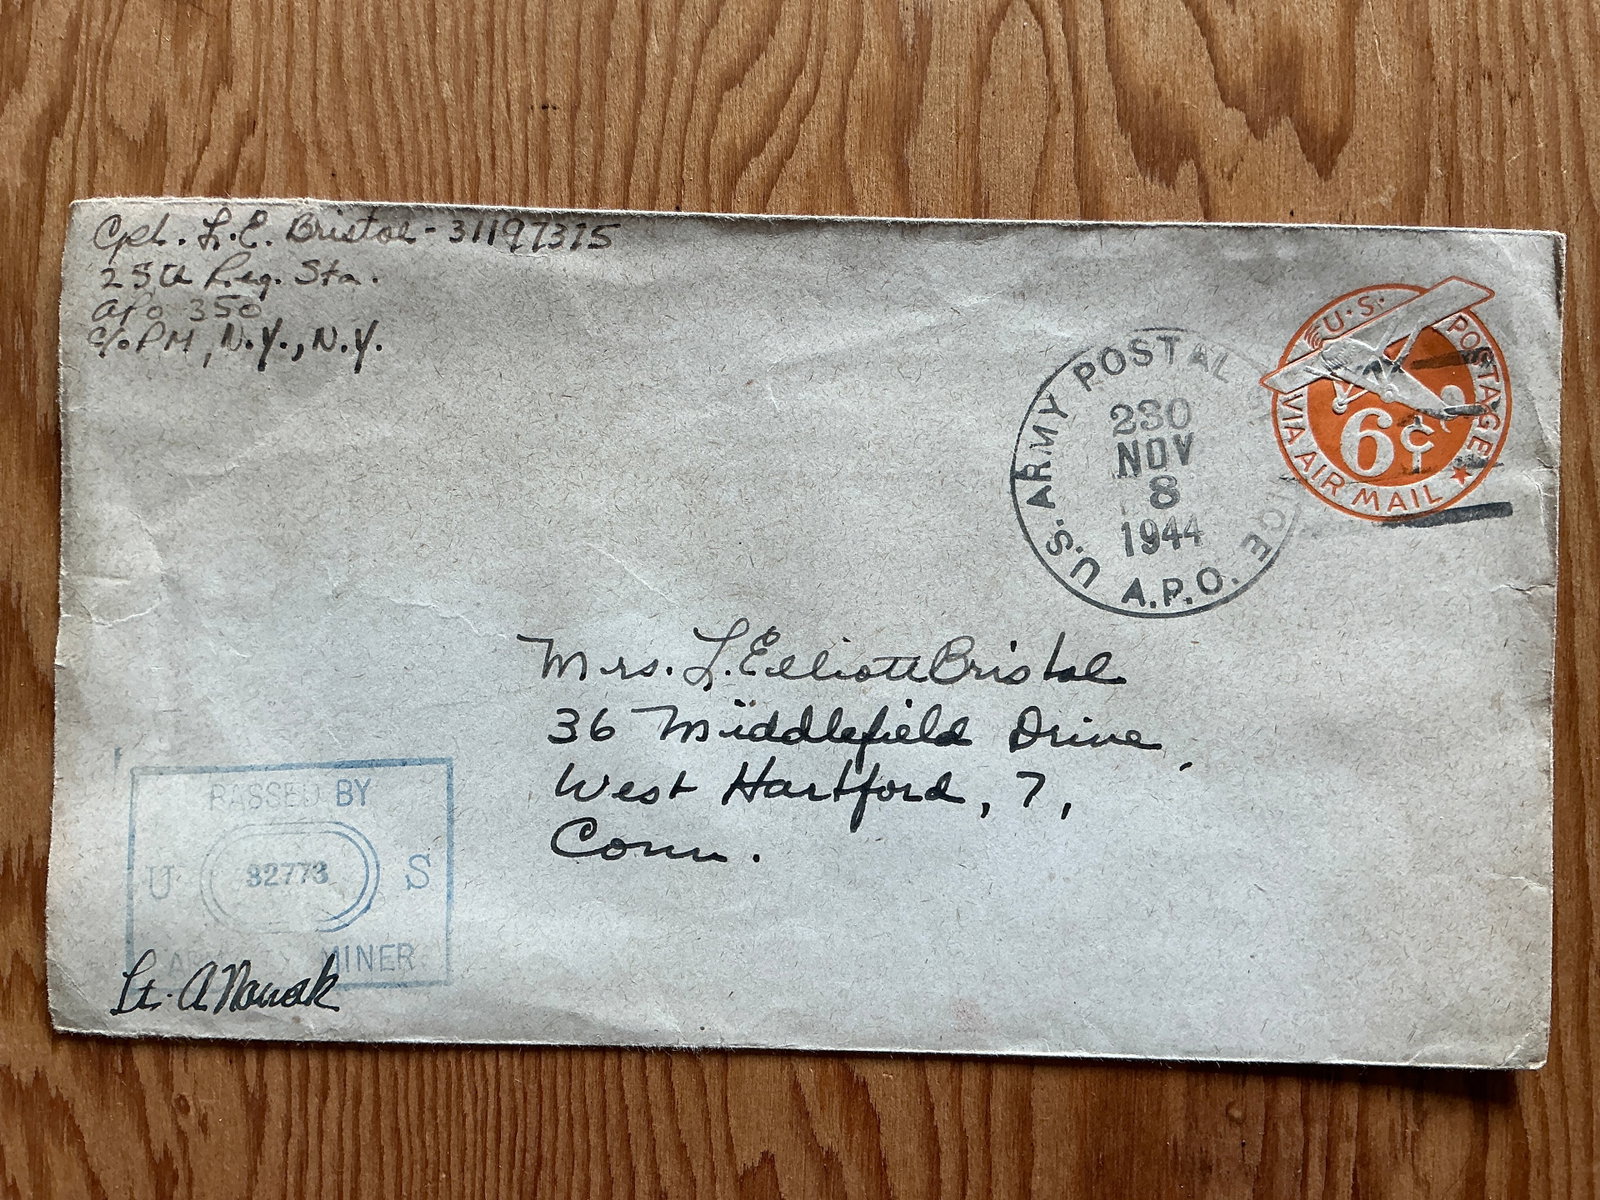 Cpl. L. E. Bristol - 31197375
25th Reg. Sta.
APO 350
c/o PM, N.Y., N.Y.
U.S. POSTAGE
VIA AIR MAIL
6¢
U.S. ARMY POSTAL
A.P.O.
230
NOV
8
1944
Mrs. L. Elliott Bristol
36 Middlefield Drive,
West Hartford, 7,
Conn.
PASSED BY
U 32773 S
ARMY EXAMINER
Lt. A Nowak